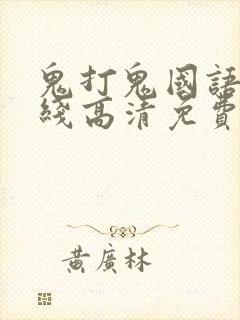 鬼打鬼國語
綫高清免費
黃廣林